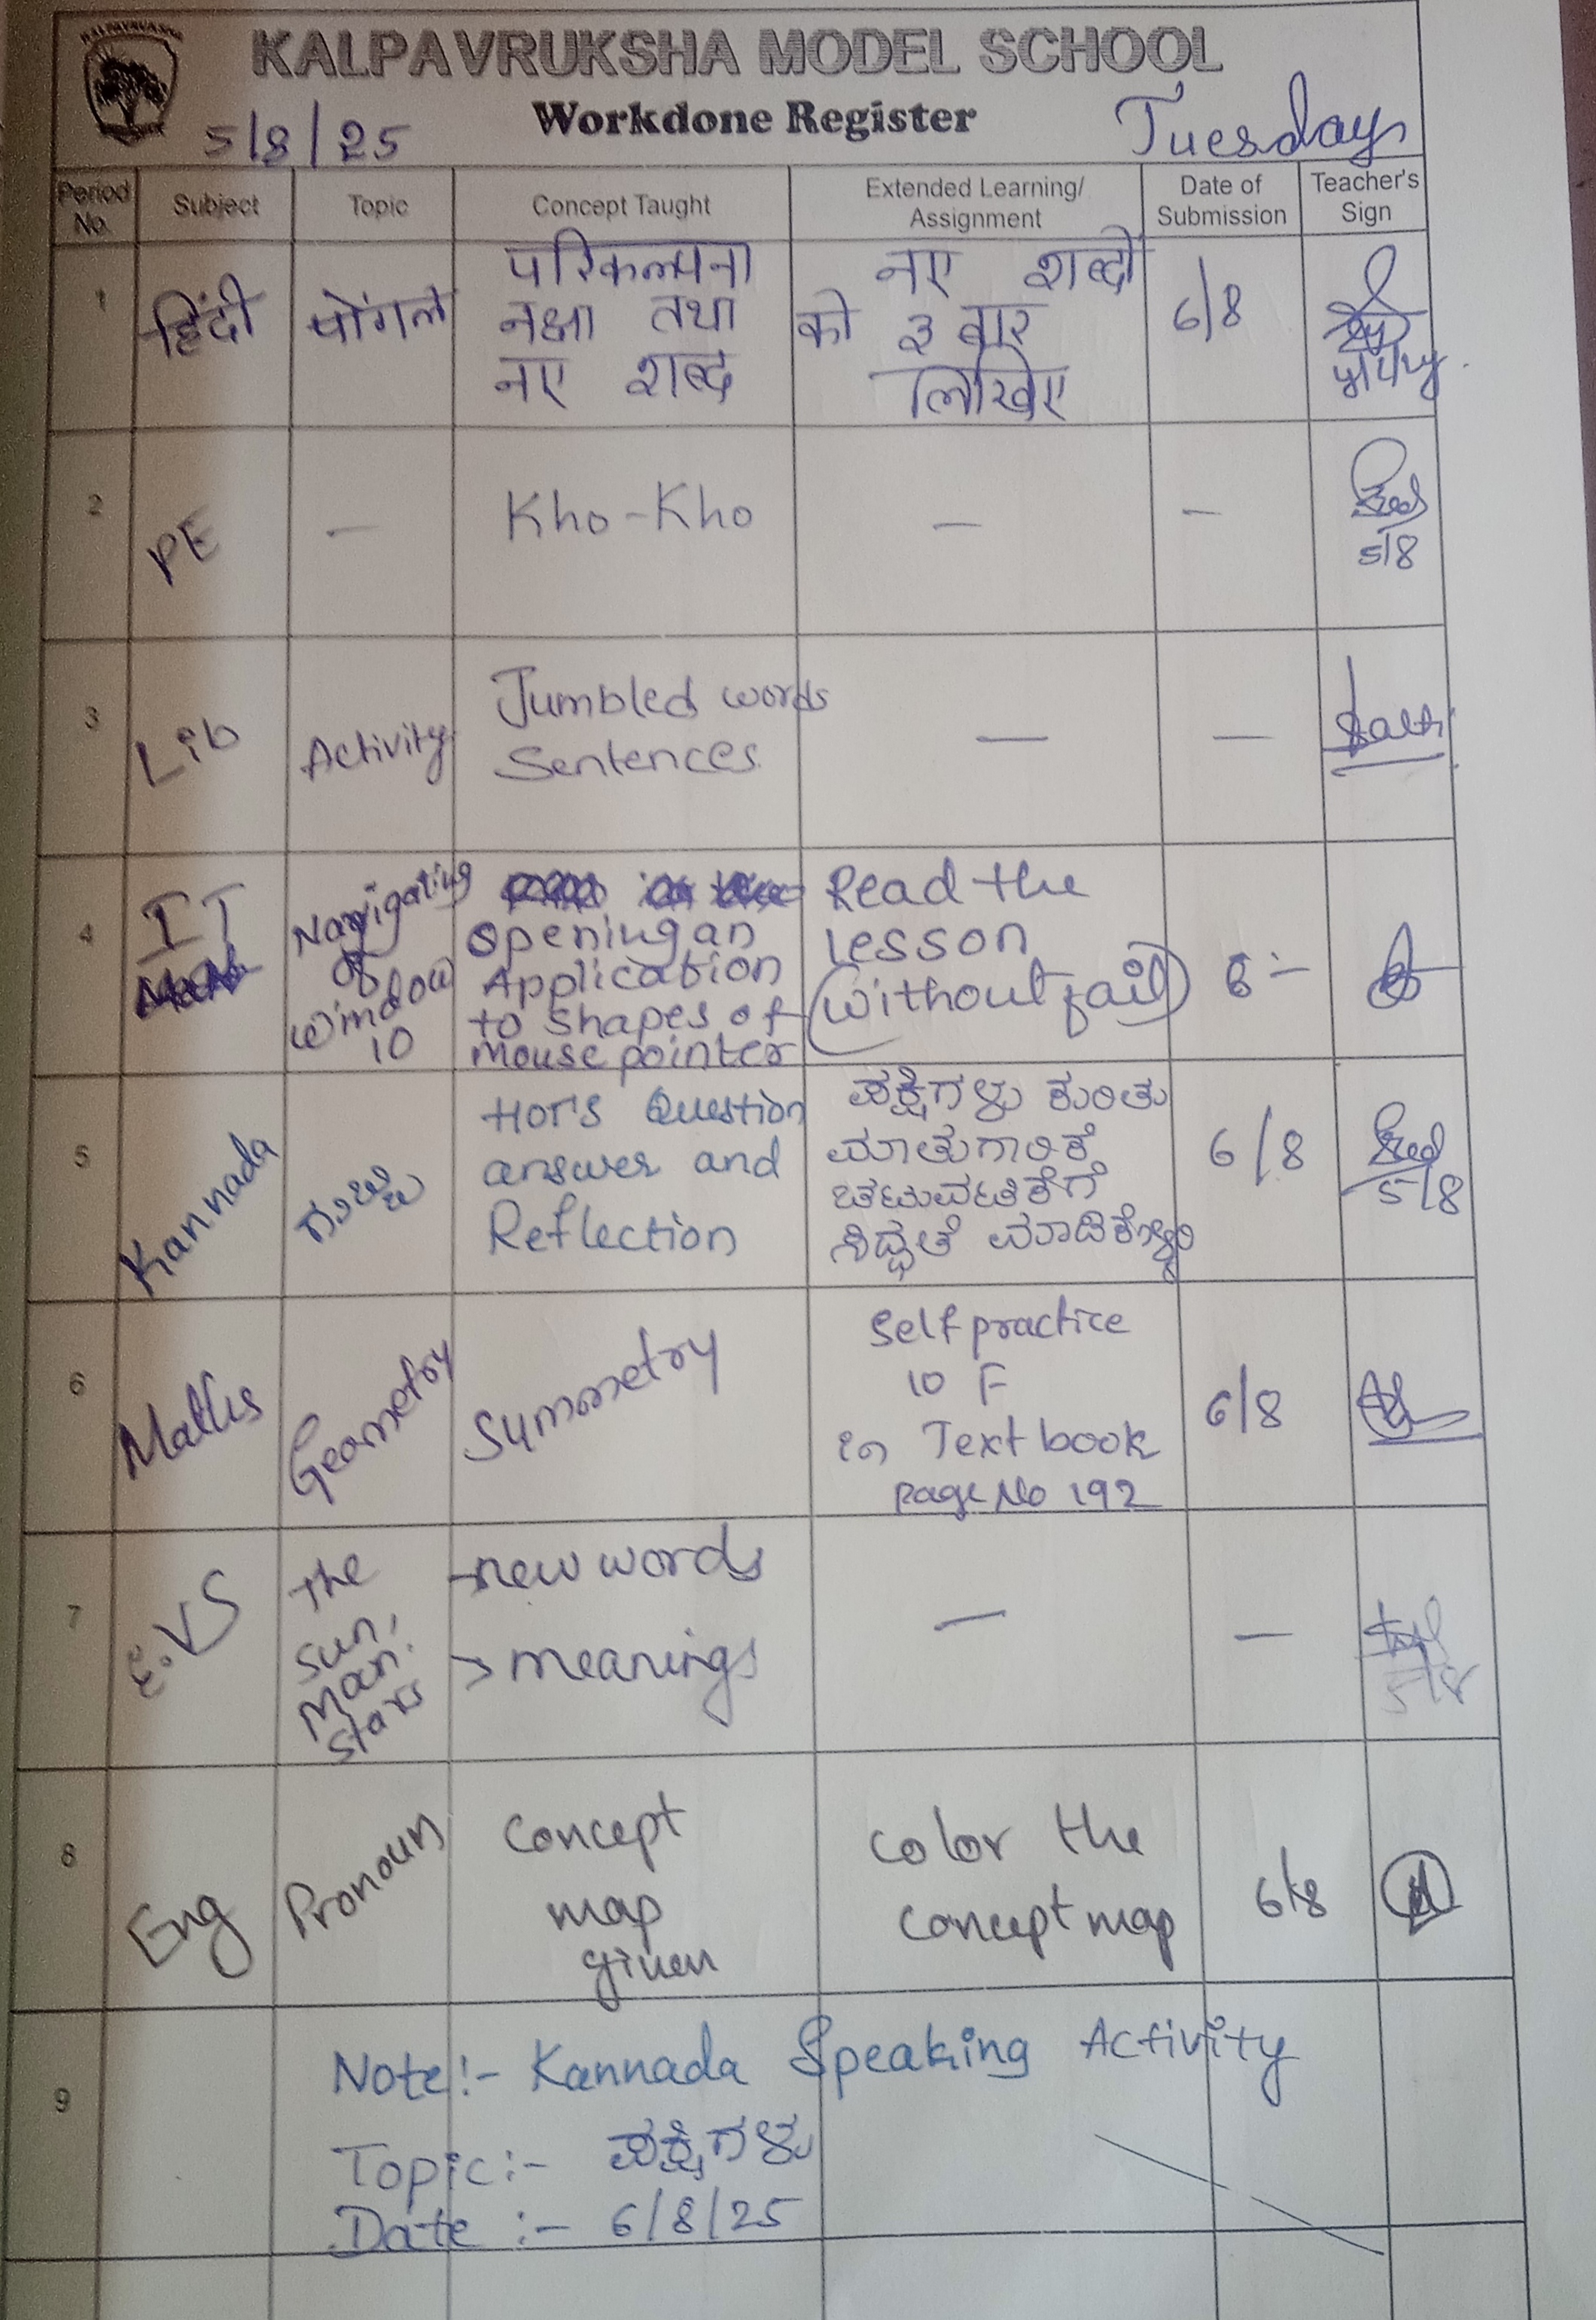 KALPAVRUKSHA
KALPAVRUKSHA MODEL SCHOOL
Workdone Register
5/8/25
Tuesday
Period No. Subject Topic Concept Taught Extended Learning/ Assignment Date of Submission Teacher's Sign
1 हिंदी पोंगल परिकल्पना नए शब्दों 6/8
नक्षा तथा को 3 बार
नए शब्द लिखिए
2 PE — Kho-Kho — — 5/8
3 Lib Activity Jumbled words — —
Sentences
4 IT Navigating opening an Read the 6 :-
of Application lesson
window to shapes of (without fail)
10 mouse pointer
5 Kannada ಗುಬ್ಬಿ HOT'S Question ಪಕ್ಷಿಗಳು ಕುರಿತು 6/8 5/8
answer and ಮಾತುಗಾರಿಕೆ
Reflection ಚಟುವಟಿಕೆಗೆ
ಸಿದ್ಧತೆ ಮಾಡಿಕೊಳ್ಳಿರಿ
6 Maths Geometry Symmetry Self practice 6/8
10 F
in Text book
page No 192
7 E.VS The -new words — — 5/8
sun, → meanings
stars
8 Eng Pronoun Concept color the 6/8
map concept map
given
9 Note:- Kannada Speaking Activity
Topic:- ಪಕ್ಷಿಗಳು
Date :- 6/8/25